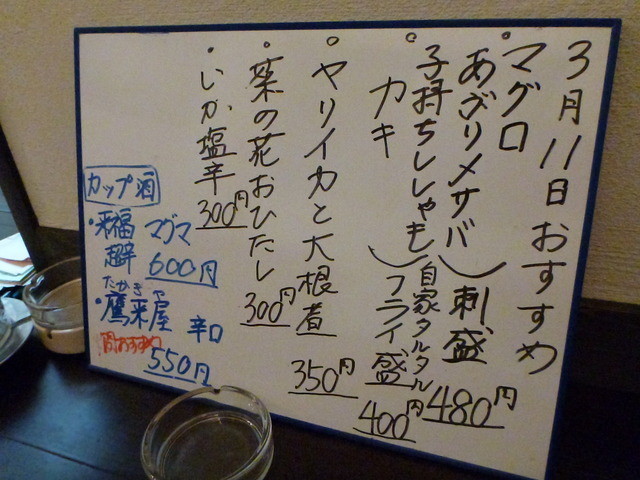 3月11日おすすめ
マグロ
あぶりメサバ
刺盛
480円
子持ちししゃも
カキ
自家タルタル
フライ盛
400円
ヤリイカと大根煮
350円
菜の花おひたし
300円
いか塩辛
300円
カップ酒
来福 マグマ
超辛 600円
たかきや
鷹来屋 辛口
550円